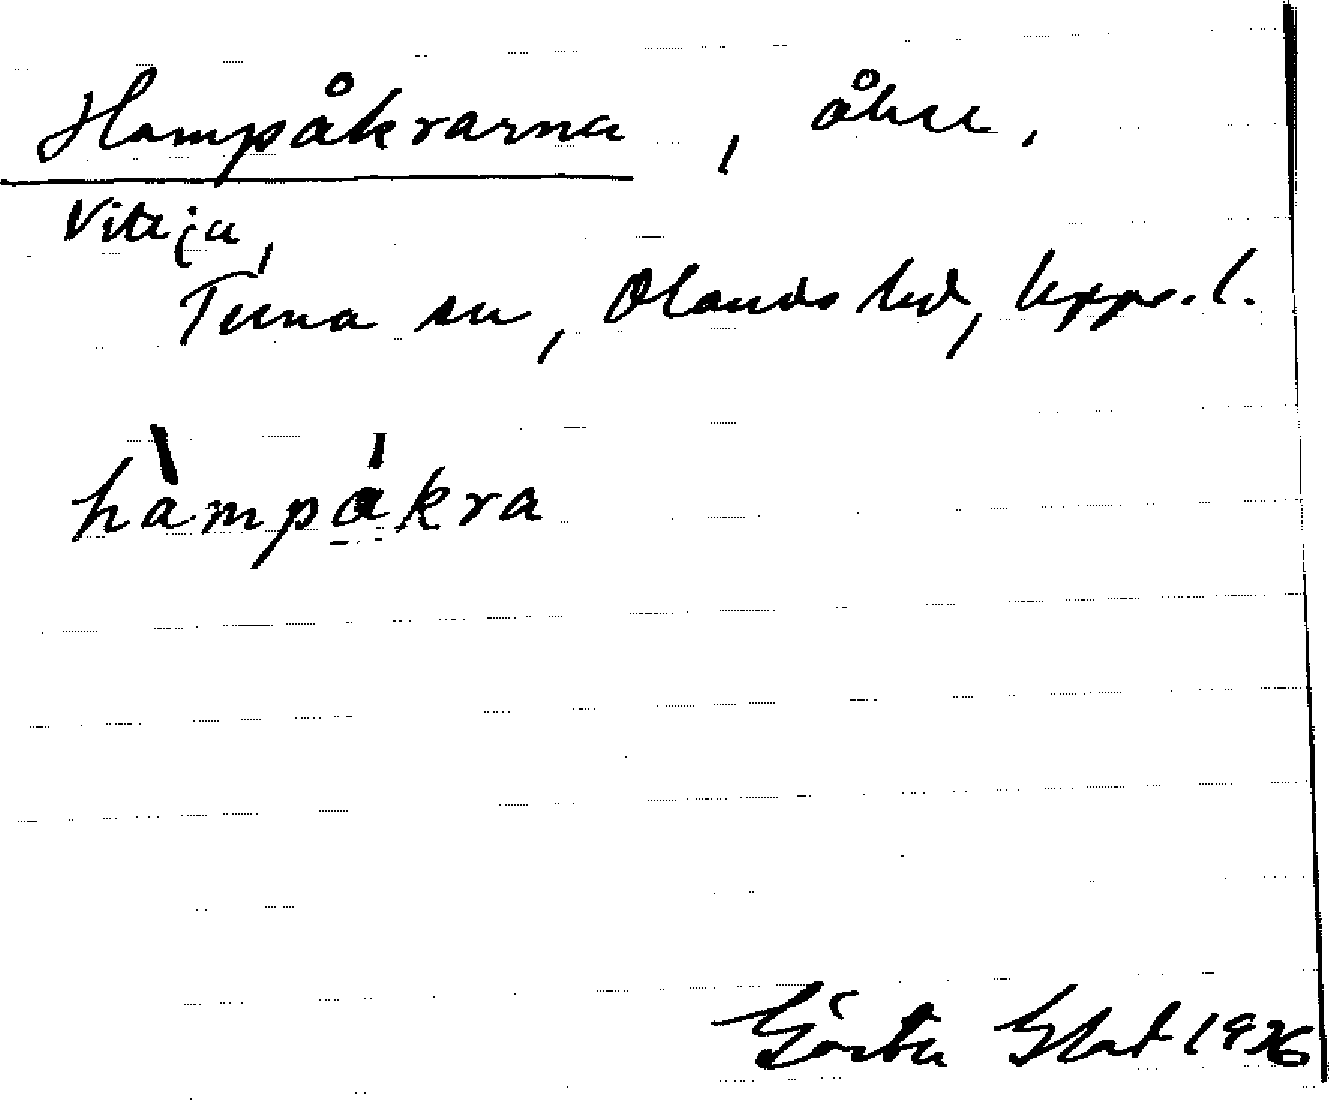 Hampåkrarna, åker,
Viteja,
Tuna sn, Olands hd, Upps. l.
hàmpákra
Gösta